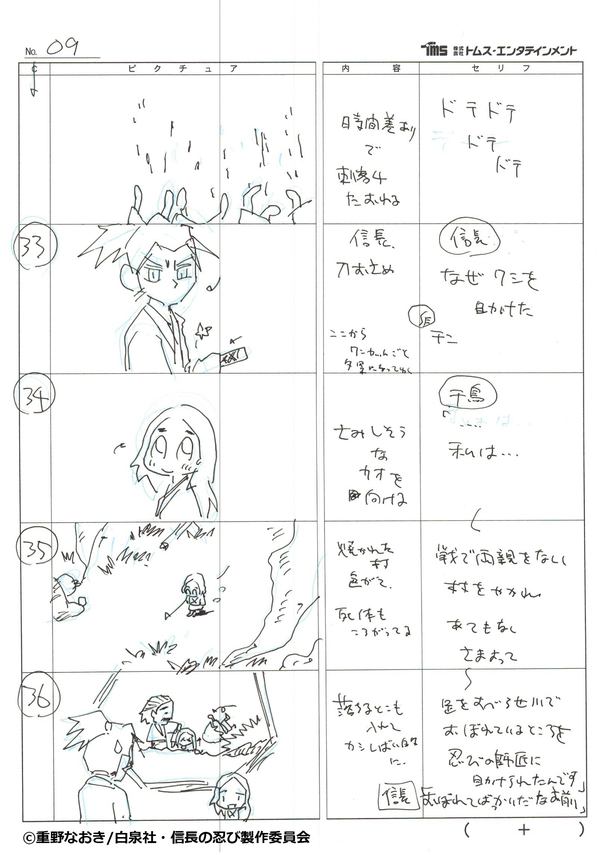 No. 09
TMS 株式会社 トムス・エンタテインメント
C ピクチュア 内容 セリフ
時間差あり
で
刺客4
たおれる
ドテドテ
ドテ
ドテ
33
信長、
刀おさめ
ここから
信長
なぜワシを
助けた
SE
チン
34
さみしそう
な
カオを
向ける
千鳥
「……
私は…
35
焼かれた
村
色がて、
死体も
ころがってる
戦で両親をなくし
村をやかれ
あてもなく
さまよって
36
落ちるとこも
入れて
カシばい的
に.
足をすべらせ川で
おぼれているところを
忍びの師匠に
助けられたんです」
信長
「おぼれてばっかいだなお前」
( + )
©重野なおき/白泉社・信長の忍び製作委員会